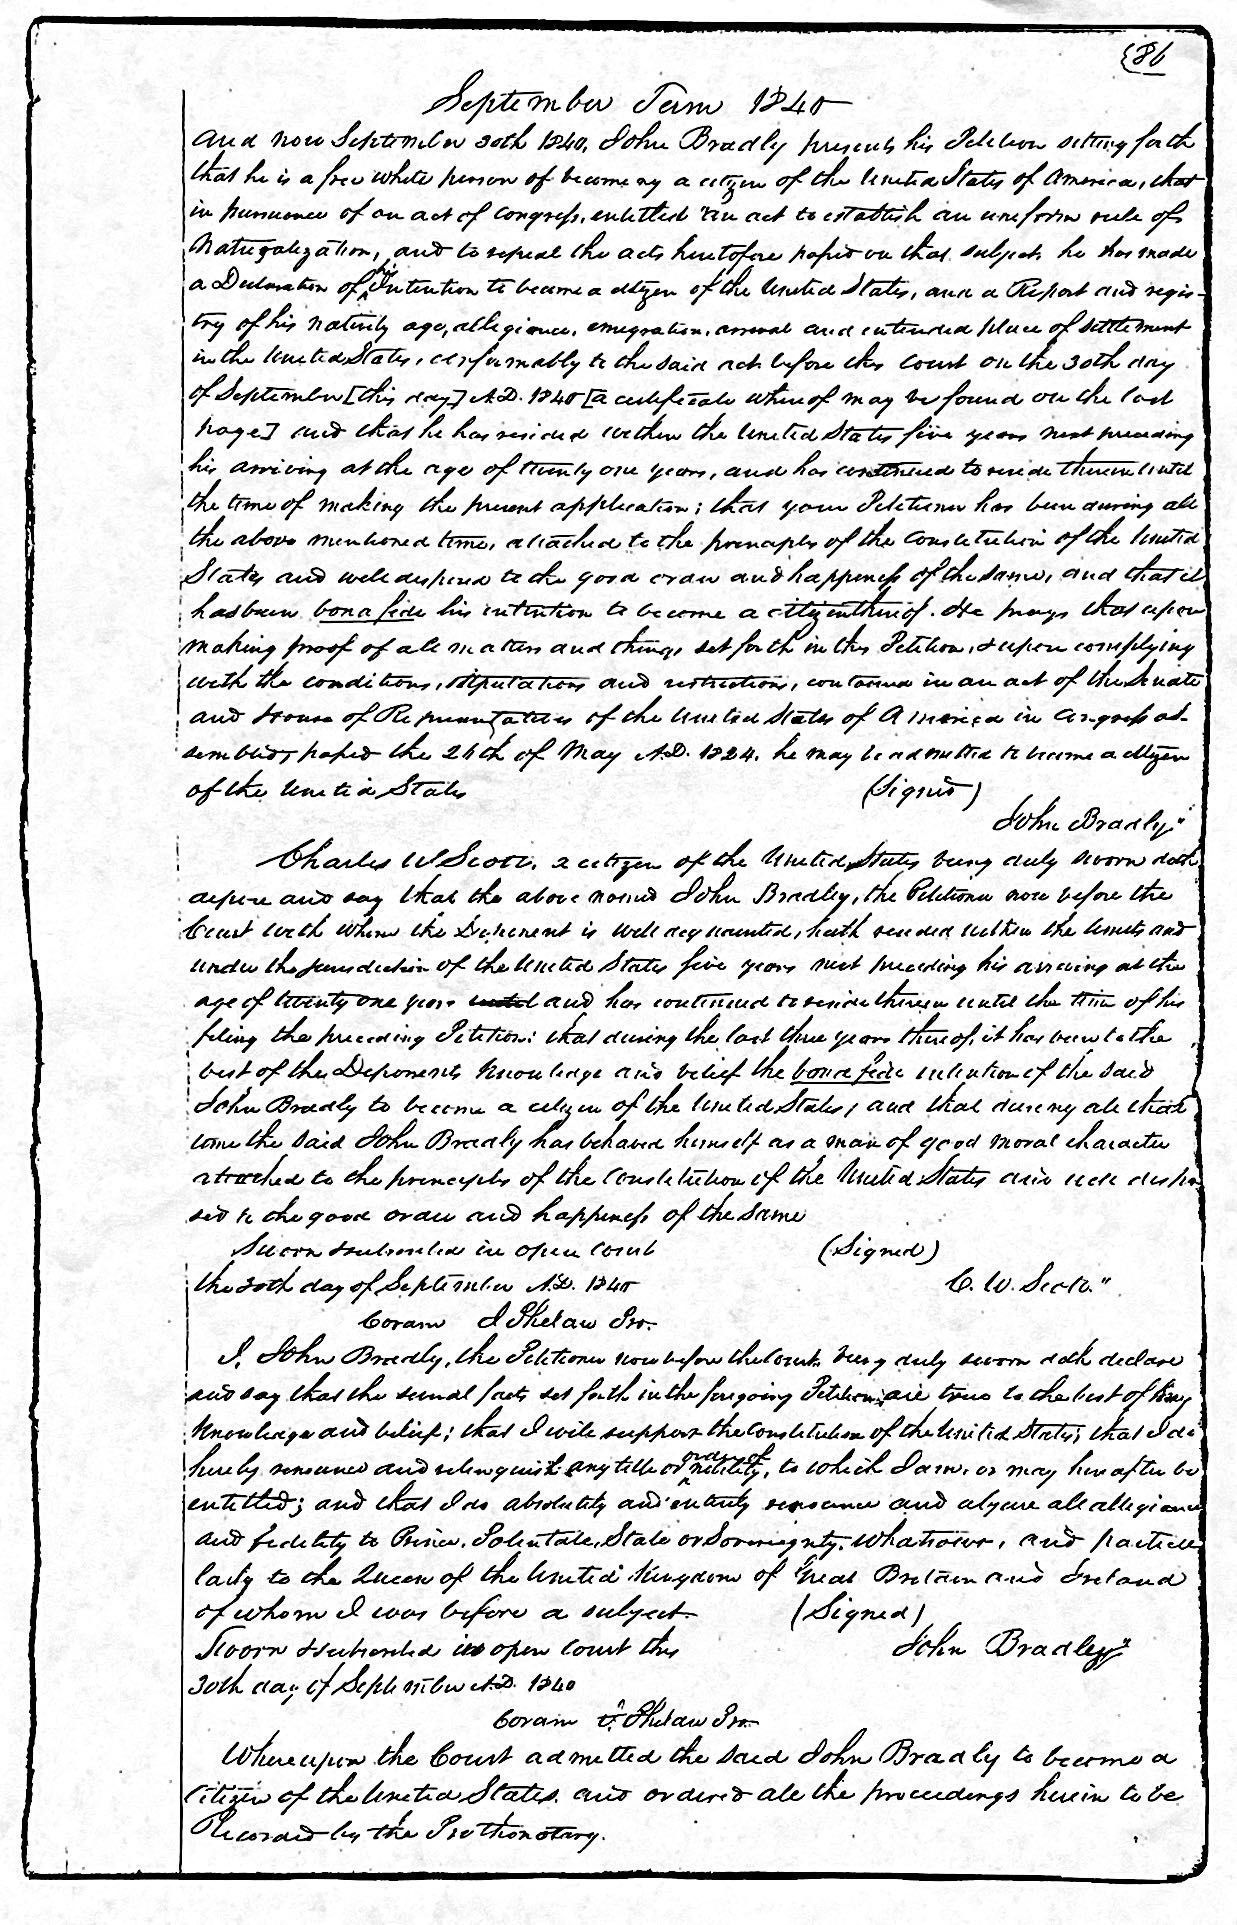 86
September Term 1840
And now September 30th 1840, John Bradly presents his Petition setting forth
that he is a free white person of becoming a citizen of the United States of America, that
in pursuance of an act of Congress, entitled "an act to establish an uniform rule of
Naturalization, and to repeal the acts heretofore passed on that subject, he has made
a Declaration of his Intention to become a citizen of the United States, and a Report and regis-
try of his nativity age, allegiance, emigration, arrival and intended place of settlement
in the United States, conformably to the said act before this Court on the 30th day
of September [this day] A.D. 1840 [a certificate whereof may be found on the last
page] and that he has resided within the United States five years next preceding
his arriving at the age of twenty one years, and has continued to reside therein until
the time of making the present application; that your Petitioner has been during all
the above mentioned time, attached to the principles of the Constitution of the United
States and well disposed to the good order and happiness of the same, and that it
has been bona fide his intention to become a citizen thereof. He prays that upon
making proof of all matters and things set forth in this Petition, & upon complying
with the conditions, stipulations and restrictions, contained in an act of the Senate
and House of Representatives of the United States of America in Congress as-
sembled, passed the 26th of May A.D. 1824. he may be admitted to become a citizen
of the United States (Signed)
John Bradly"
Charles W Scott, a citizen of the United States being duly sworn doth
depose and say that the above named John Bradley, the Petitioner now before the
Court with whom the Deponent is well acquainted, hath resided within the limits and
under the jurisdiction of the United States five years next preceding his arriving at the
age of twenty one years until and has continued to reside therein until the time of his
filing the preceding Petition: that during the last three years thereof, it has been to the
best of the Deponents knowledge and belief the bona fide intention of the said
John Bradly to become a citizen of the United States, and that during all that
time the said John Bradly has behaved himself as a man of good moral character
attached to the principles of the Constitution of the United States and well dispo
sed to the good order and happiness of the same
Sworn & subscribed in open Court (Signed)
the 30th day of September A.D. 1840 C. W. Scott."
Coram J Phelan Pro.
I, John Bradly, the Petitioner now before the Court, being duly sworn doth declare
and say that the several facts set forth in the foregoing Petition, are true to the best of my
knowledge and belief; that I will support the Constitution of the United States; that I do
hereby renounce and relinquish any title or order of nobility, to which I am, or may hereafter be
entitled; and that I do absolutely and entirely renounce and abjure all allegiance
and fidelity to Prince, Potentate, State or Sovereignty, whatsoever, and particu
larly to the Queen of the United Kingdom of Great Britain and Ireland
of whom I was before a subject. (Signed)
Sworn & subscribed in open Court this John Bradley"
30th day of September A.D. 1840
Coram J. Phelan Pro.
Whereupon the Court admitted the said John Bradly to become a
Citizen of the United States. and ordered all the proceedings herein to be
Recorded by the Prothonotary.